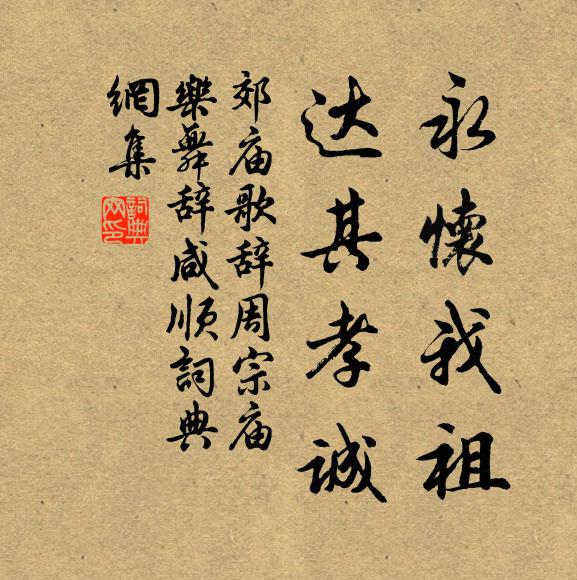 永懷我祖
达其孝诚
郊庙歌辞周宗庙
樂舞辞咸顺詞典
網集
詞典
网印